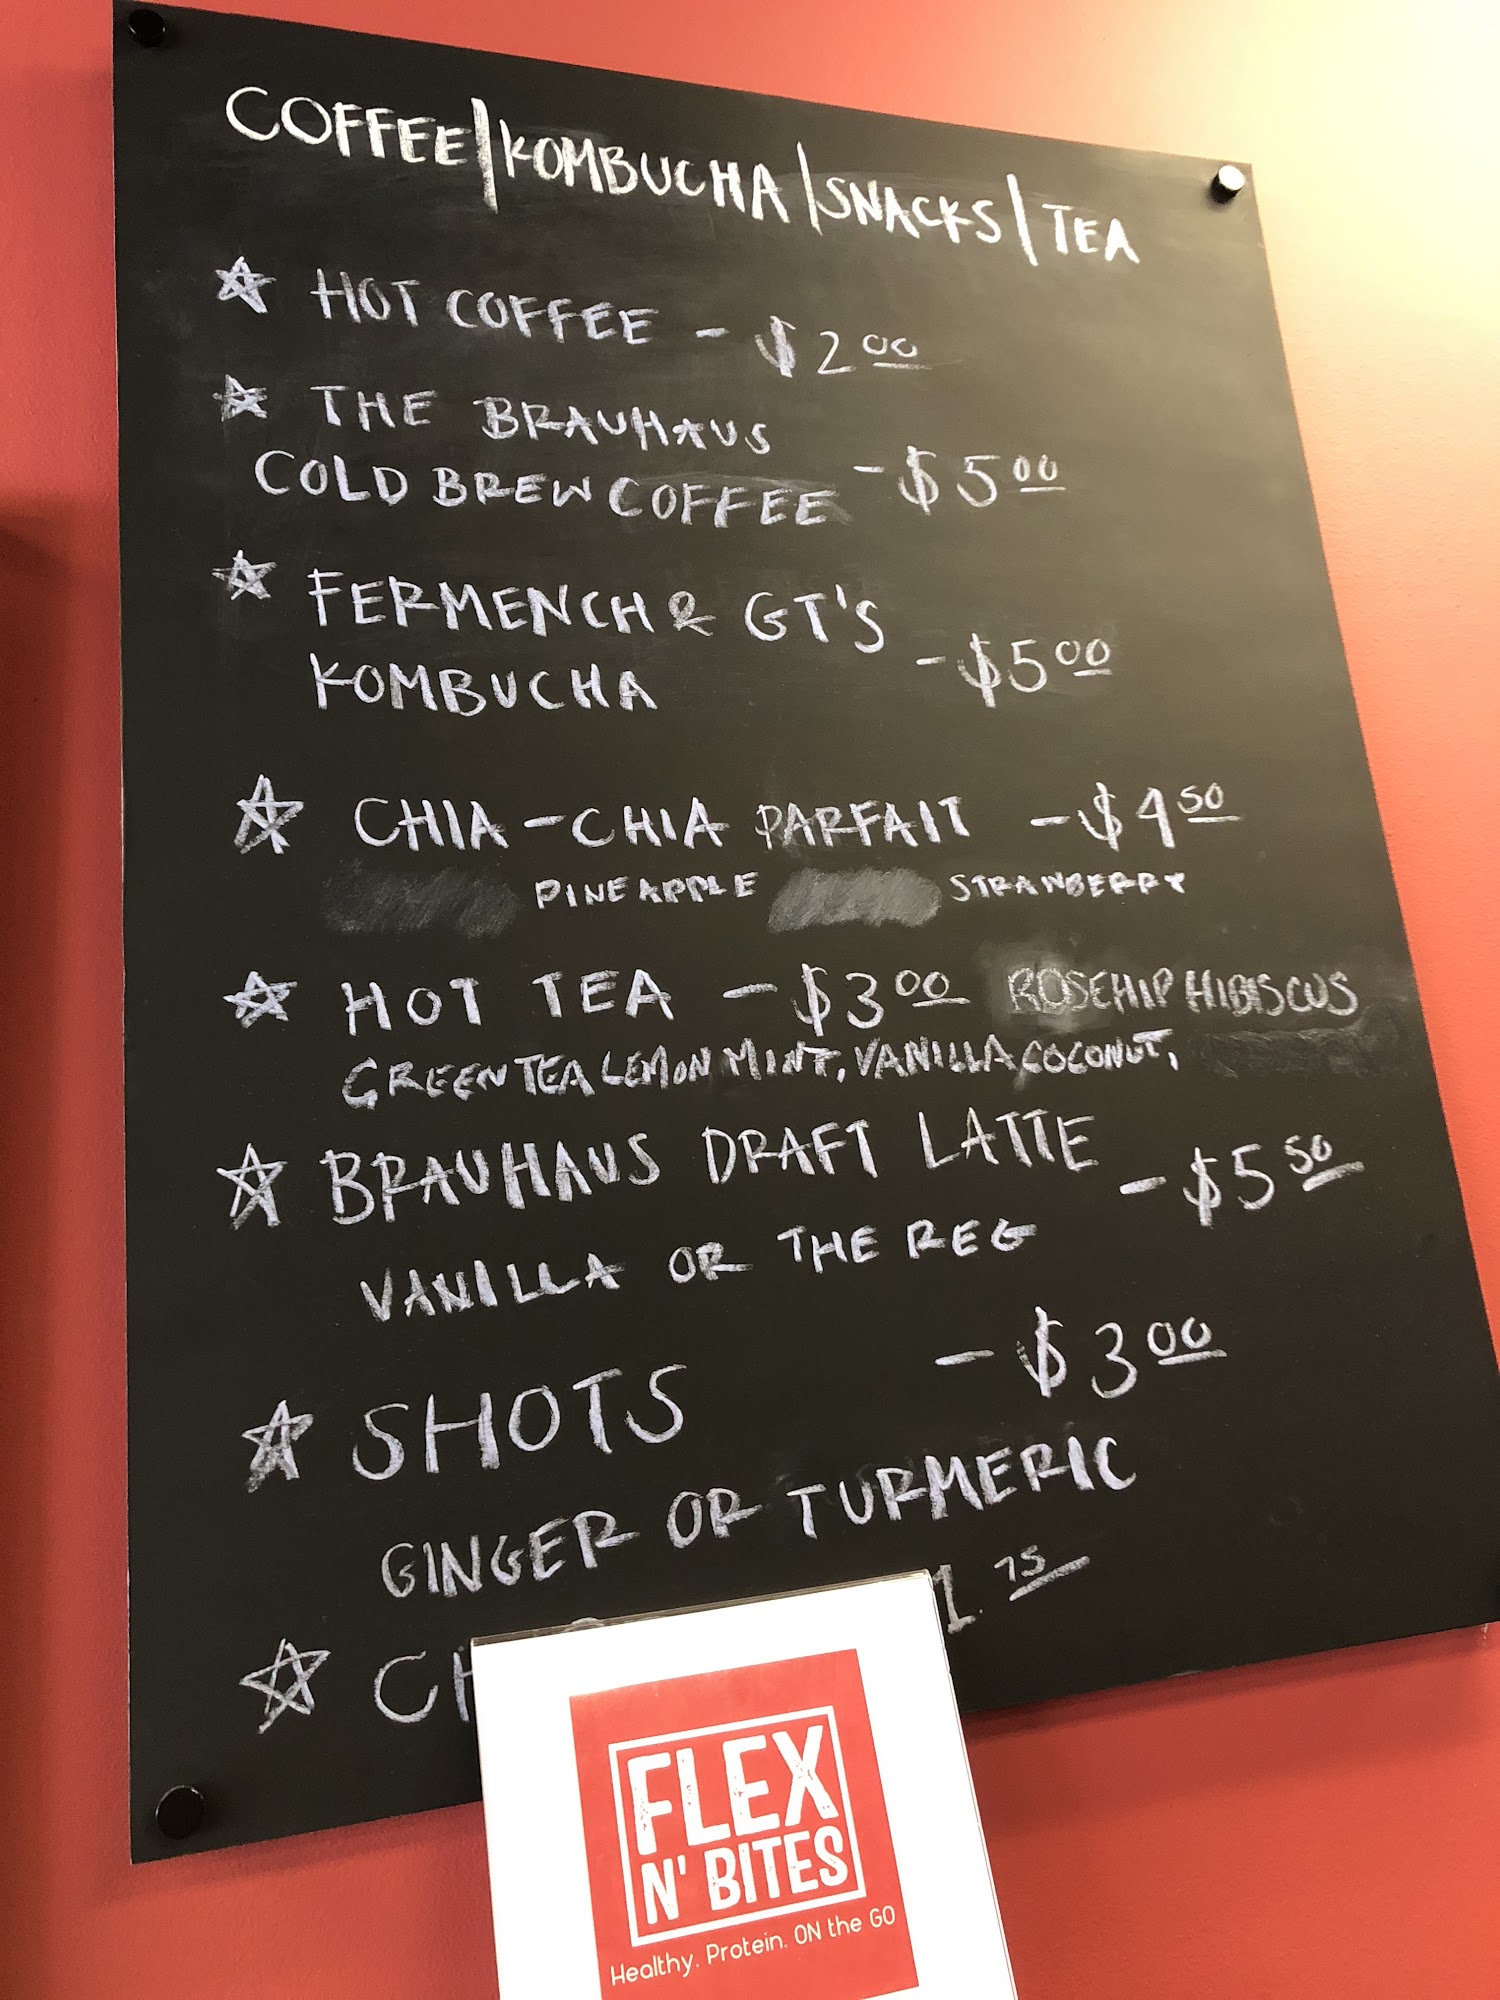 COFFEE|KOMBUCHA|SNACKS|TEA
☆ HOT COFFEE - $2.00
☆ THE BRAUHAUS
COLD BREW COFFEE - $5.00
☆ FERMENCH & GT'S
KOMBUCHA - $5.00
☆ CHIA-CHIA PARFAIT - $4.50
PINEAPPLE STRAWBERRY
☆ HOT TEA - $3.00 ROSEHIP HIBISCUS
GREEN TEA LEMON MINT, VANILLA COCONUT,
☆ BRAUHAUS DRAFT LATTE - $5.50
VANILLA OR THE REG
☆ SHOTS - $3.00
GINGER OR TURMERIC
☆ 1.75
FLEX
N' BITES
Healthy. Protein. ON the GO